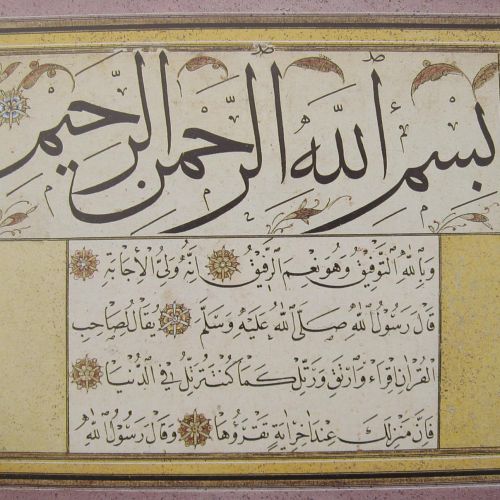 بِسْمِ اللّٰهِ الرَّحْمٰنِ الرَّحِيْمِ
وَبِاللّٰهِ التَّوْفِيْقُ وَهُوَ نِعْمَ الرَّفِيْقُ اِنَّهُ وَلِيُّ الْاِجَابَةِ
قَالَ رَسُوْلُ اللّٰهِ صَلَّى اللّٰهُ عَلَيْهِ وَسَلَّمَ يُقَالُ لِصَاحِبِ
الْقُرْاٰنِ اِقْرَاءْ وَارْتَقِ وَرَتِّلْ كَمَا كُنْتَ تُرَتِّلُ فِي الدُّنْيَا
فَاِنَّ مَنْزِلَكَ عِنْدَ اٰخِرِ اٰيَةٍ تَقْرَؤُهَا وَقَالَ رَسُوْلُ اللّٰهِ